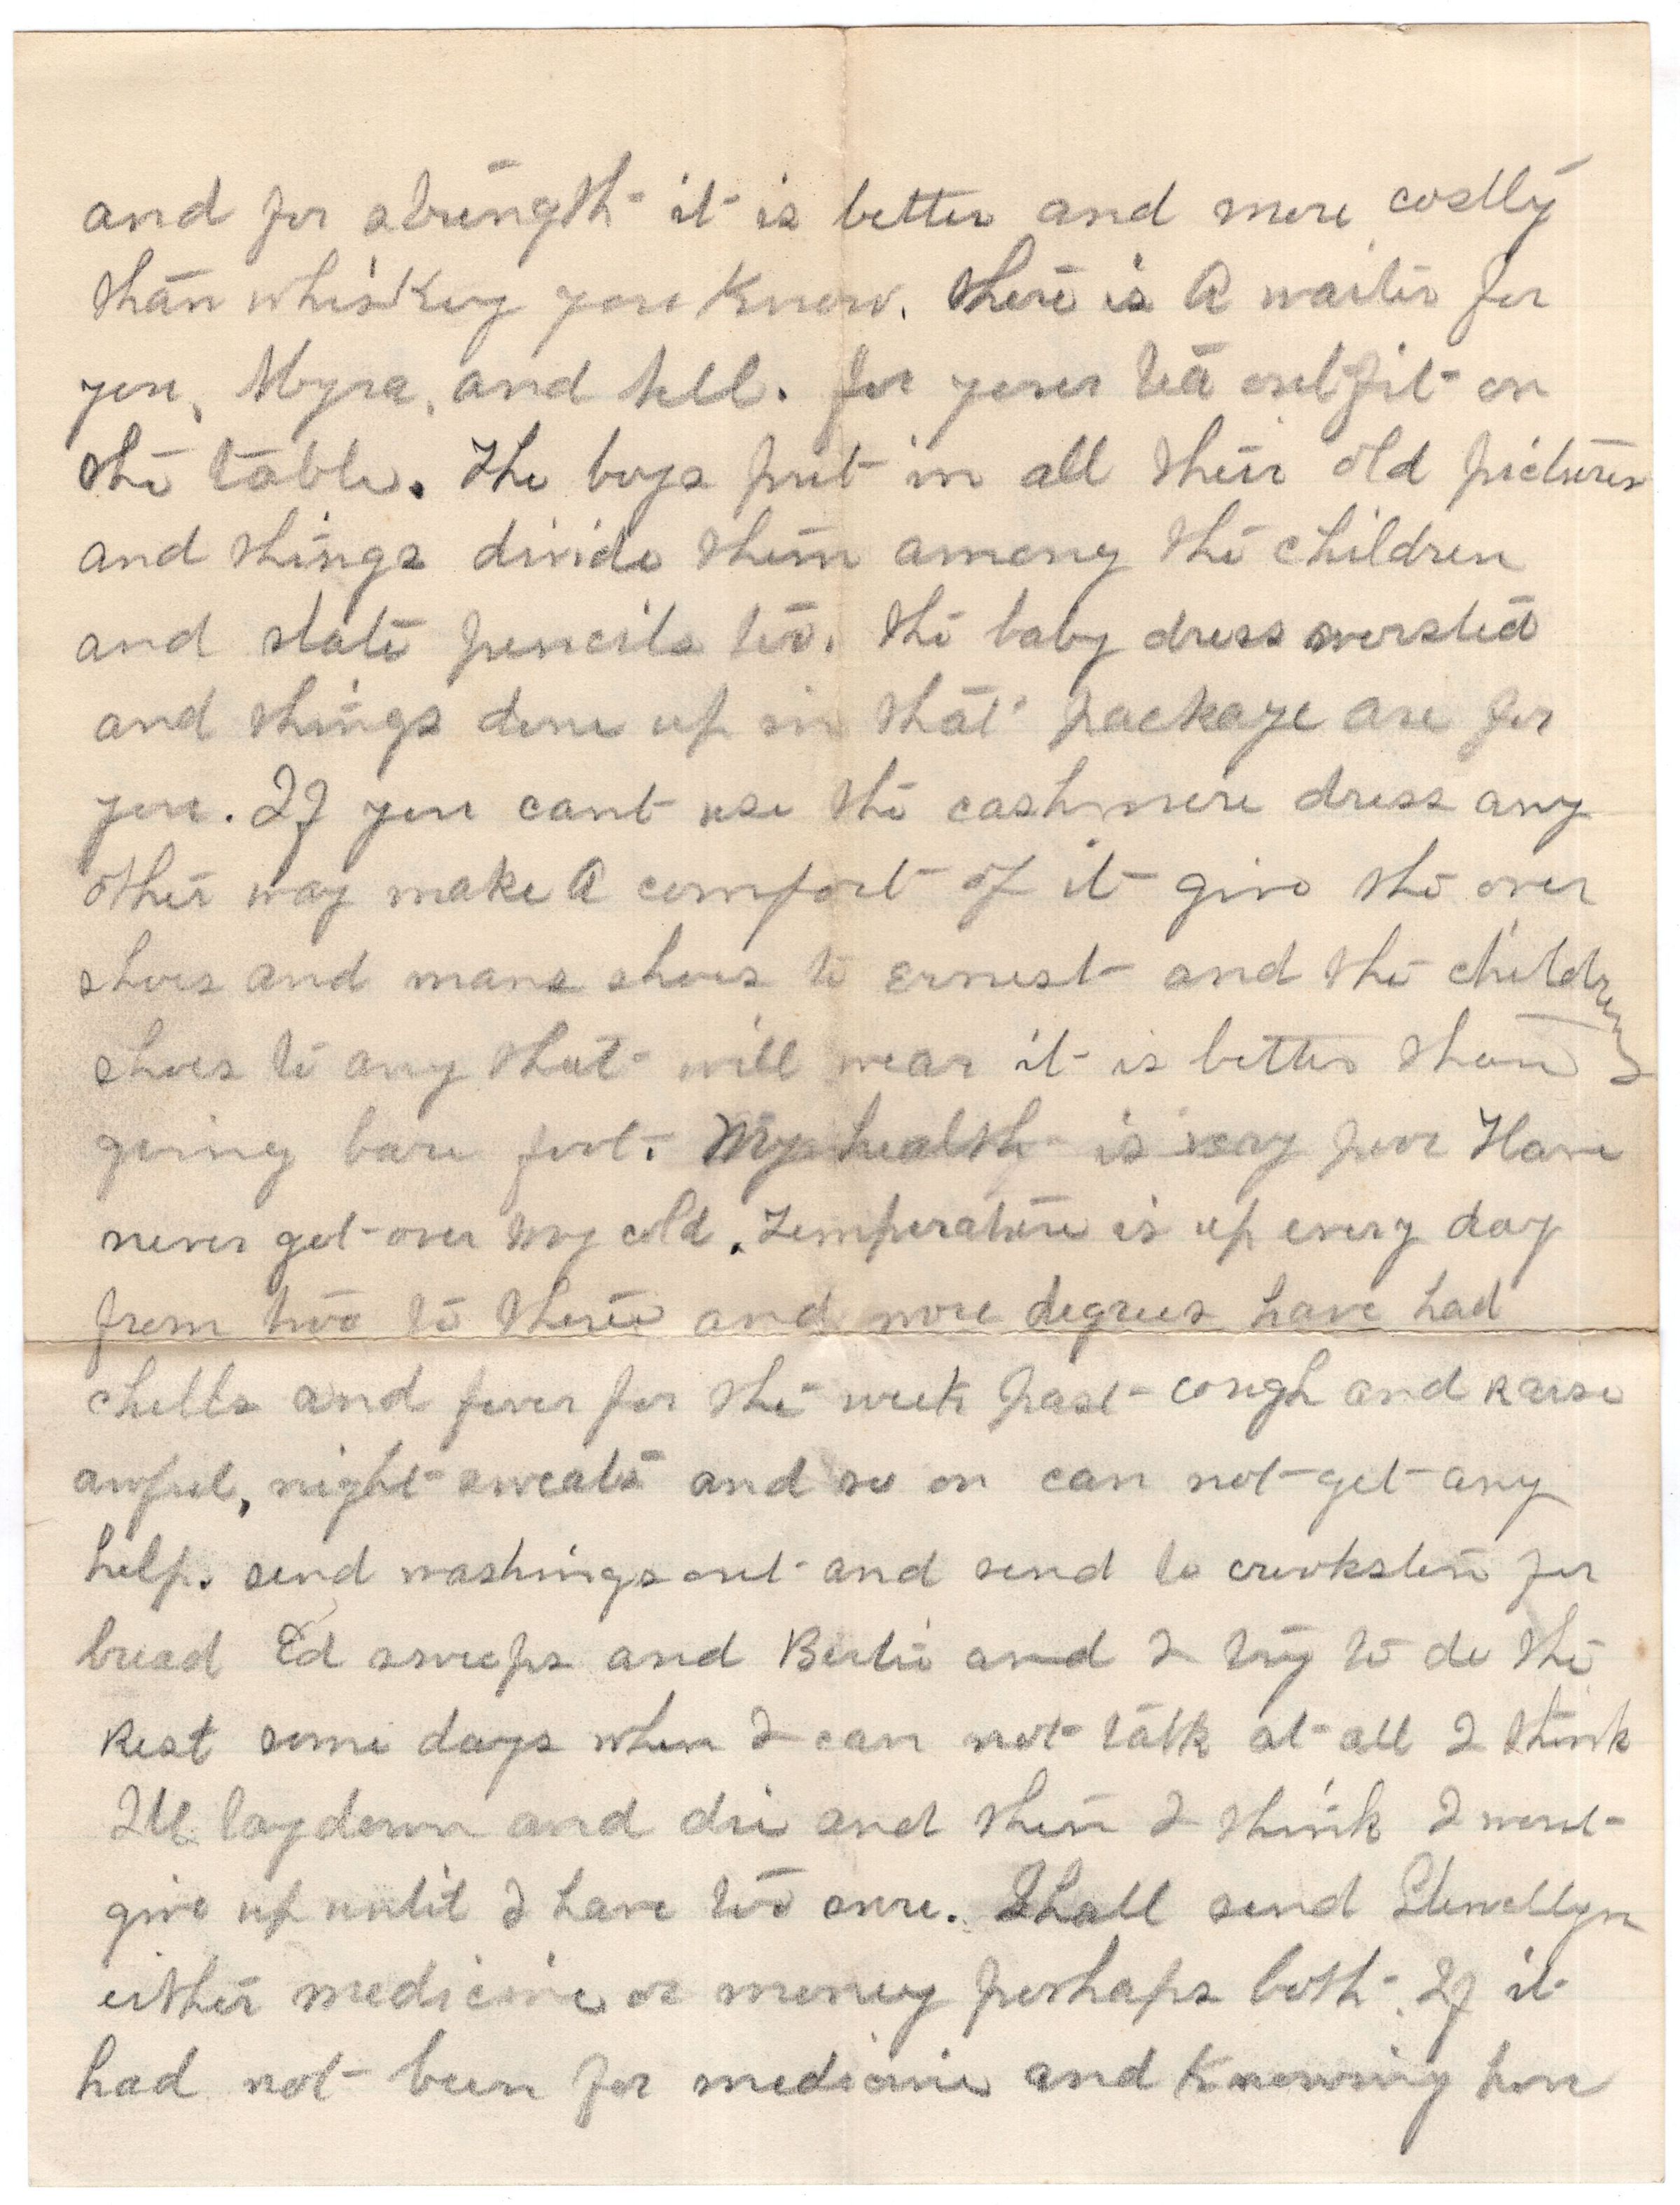 and for strength it is better and more costly
than whiskey you know. There is A waiter for
you, Myra, and Nell. for your tea outfit on
the table. The boys put in all their old pictures
and things divide them among the children
and slate pencils too. the baby dress worsted
and things done up in that package are for
you. If you cant use the cashmere dress any
other way make A comfort of it give the over
shoes and mans shoes to Ernest and the childrens
shoes to any that will wear it is better than
going bare foot. My health is very poor Have
never got over my cold. Temperature is up every day
from two to three and more degrees have had
chills and fever for the week past cough and raise
awful, night sweats and so on can not get any
help. send washings out and send to crookston for
bread Ed sweeps and Bertie and I try to do the
Rest some days when I can not talk at all I think
Ill lay down and die and then I think I wont
give up until I have too sure. Shall send Llewellyn
either medicine or money perhaps both. If it
had not been for medicine and Knowing how